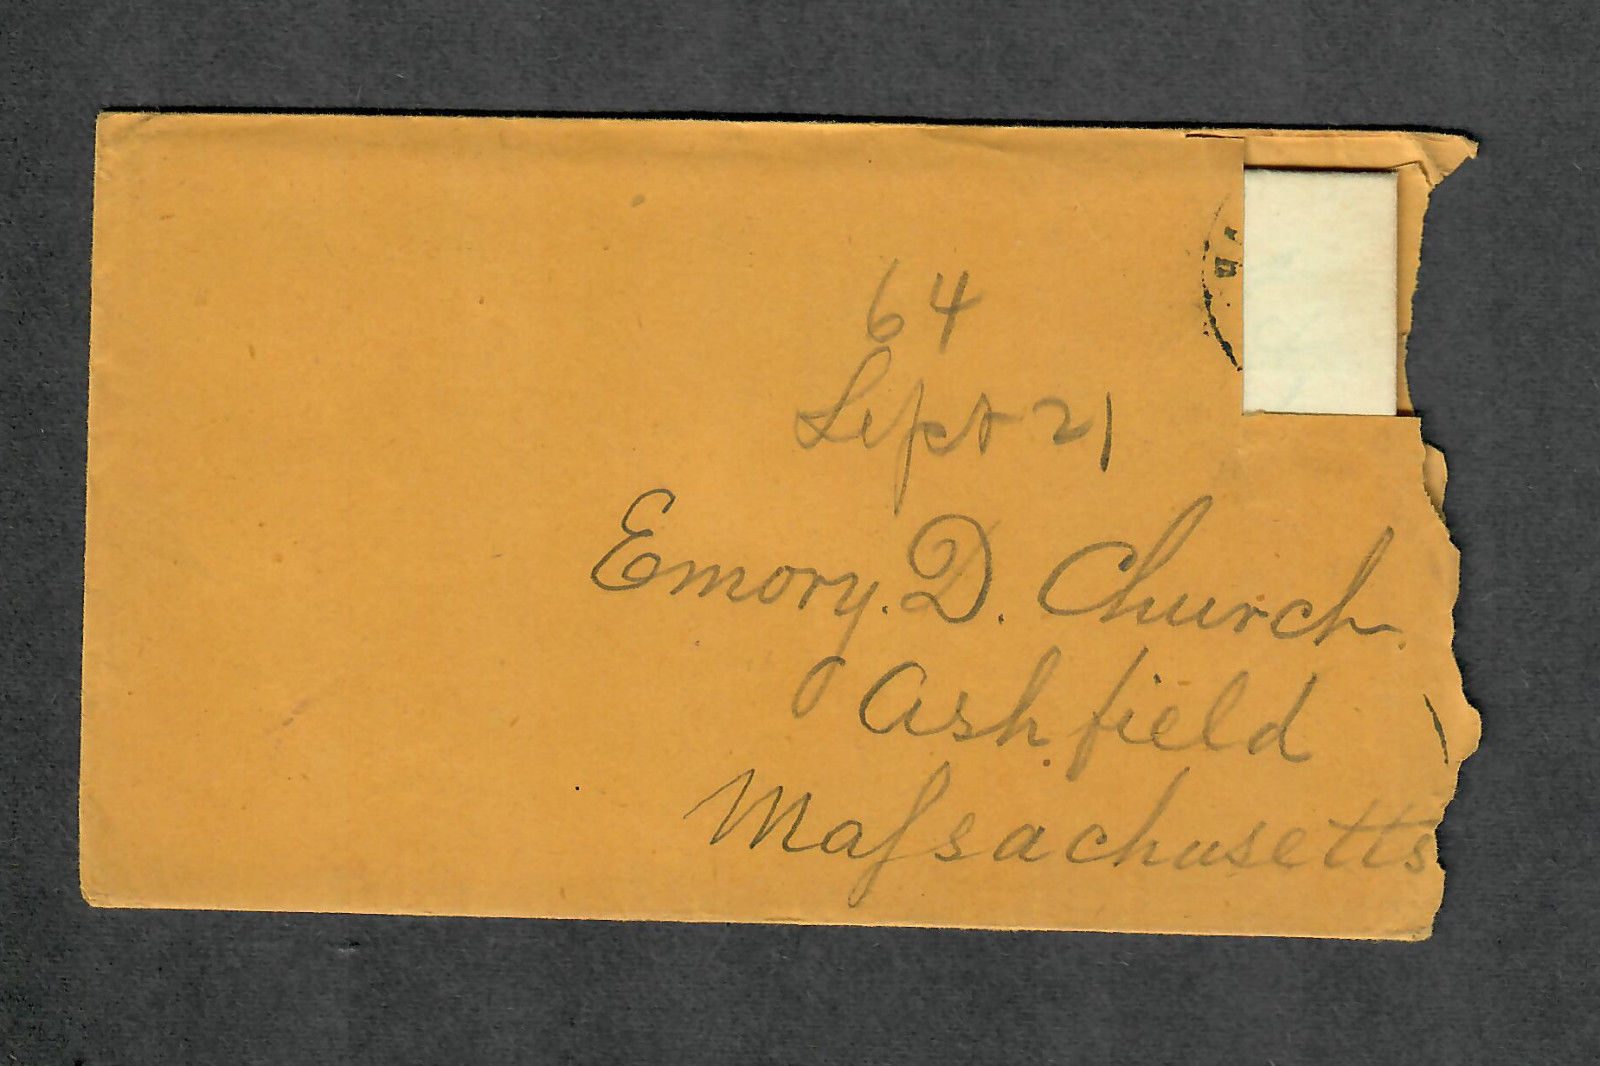 64
Sept 21
Emory. D. Church.
Ashfield
Maſsachusetts